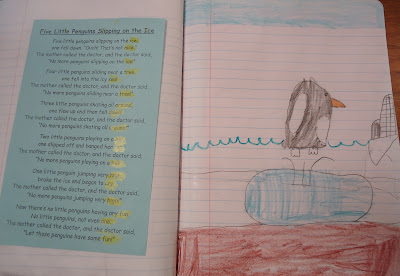 Five Little Penguins Slipping on the Ice
Five little penguins slipping on the ice,
one fell down. "Ouch! That's not nice."
The mother called the doctor, and the doctor said,
"No more penguins slipping on the ice!"
Four little penguins sliding near a tree,
one fell into the icy sea.
The mother called the doctor, and the doctor said,
"No more penguins sliding near a tree!"
Three little penguins skating all
one flew up and then fell
The mother called the doctor, and the doctor said,
"No more penguins skating all
Two little penguins playing on a
one slipped off and banged her
The mother called the doctor, and the doctor said,
"No more penguins playing on a
One little penguin jumping very
broke the ice and began to
The mother called the doctor, and the doctor said,
"No more penguins jumping very high!"
Now there's no little penguins having any fun,
No little penguins, not even one.
The mother called the doctor, and the doctor said,
"Let those penguins have some fun!"